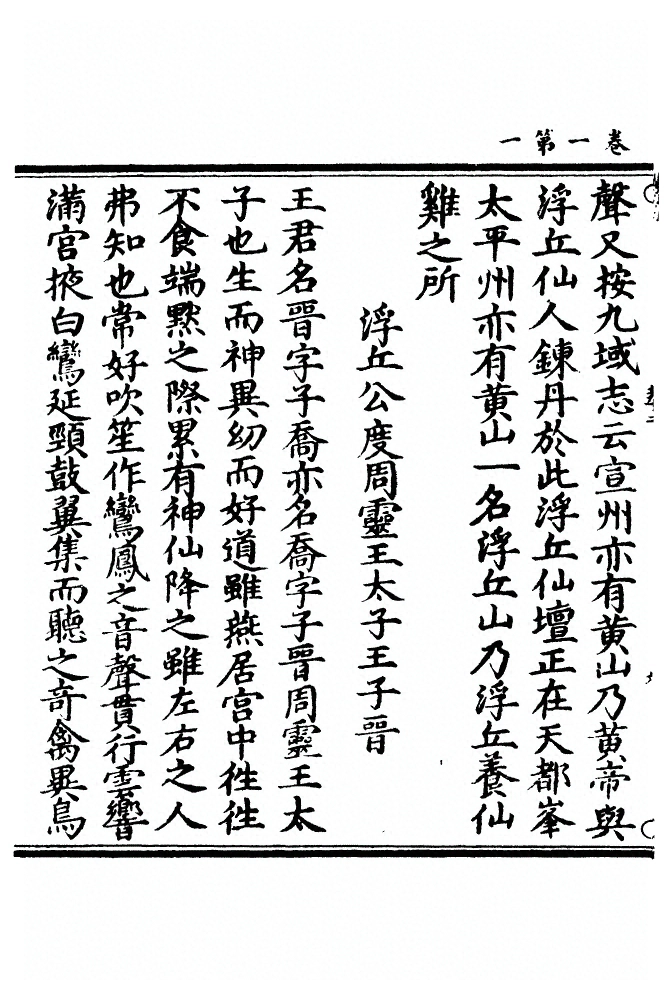 卷一第一
聲又按九域志云宣州亦有黃山乃黃帝與
浮丘仙人鍊丹於此浮丘仙壇正在天都峯
太平州亦有黃山一名浮丘山乃浮丘養仙
雞之所
浮丘公度周靈王太子王子晉
王君名晉字子喬亦名喬字子晉周靈王太
子也生而神異幼而好道雖燕居宮中徃徃
不食端默之際累有神仙降之雖左右之人
弗知也常好吹笙作鸞鳳之音聲貫行雲響
滿宮掖白鸞延頸鼓翼集而聽之奇禽異鳥